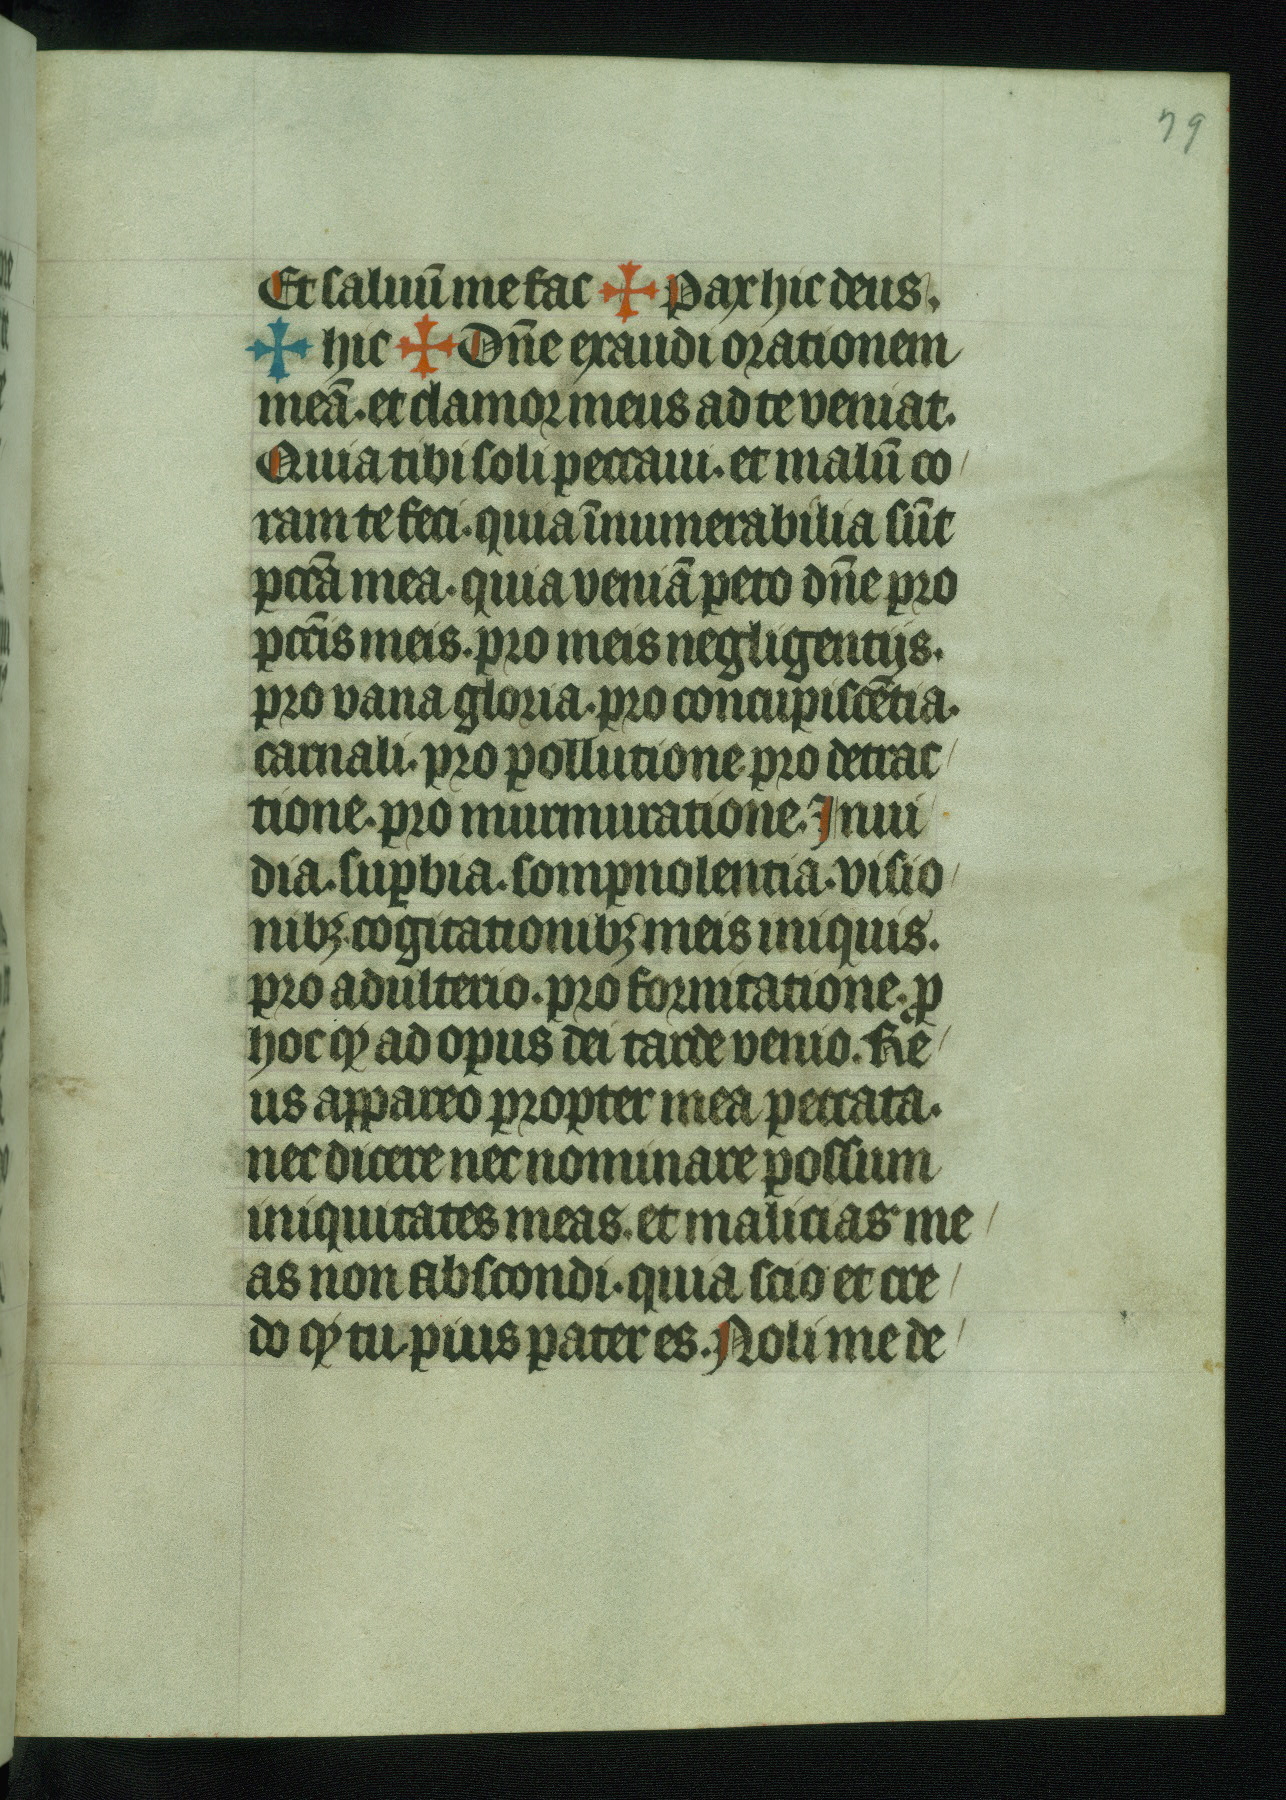 79
Et saluū me fac ✠ Pax hic deus.
✠ hic ✠ Dn̄e exaudi orationem
meā. et clamor meus ad te veniat.
Quia tibi soli peccaui. et malū co/
ram te feci. quia īnumerabilia sūt
pccā mea. quia veniā peto dn̄e pro
pccīs meis. pro meis negligentijs.
pro vana gloria. pro concupiscētia.
carnali. pro pollutione pro detrac/
tione. pro murmuratione. Inui/
dia. supbia. sompnolentia. visio/
nibꝫ. cogitationibꝫ meis iniquis.
pro adulterio. pro fornicatione. ꝓ
hoc ꝙ ad opus dei tarde venio. Re/
us appareo propter mea peccata.
nec dicere nec nominare possum
iniquitates meas. et malicias me/
as non abscondi. quia scio et cre/
do ꝙ tu pius pater es. Noli me de/